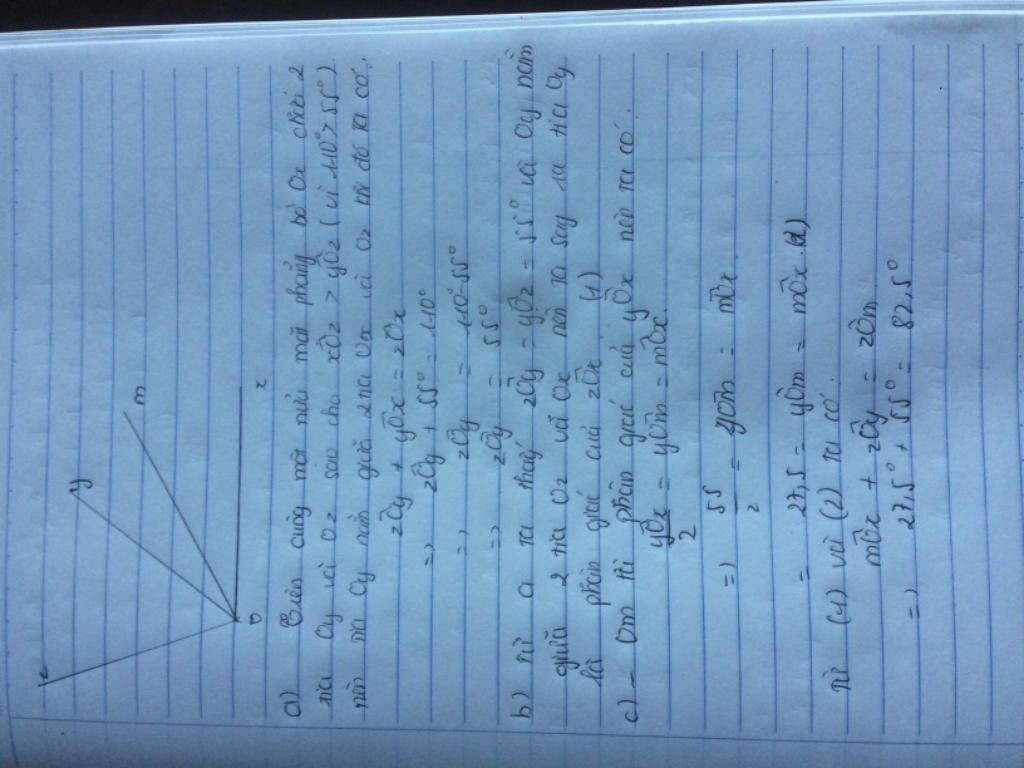 z
y
m
O
x
a) Trên cùng một nửa mặt phẳng bờ Ox chứa 2
tia Oy và Oz sao cho xÔz > yÔz (vì 110° > 55°)
nên tia Oy nằm giữa 2 tia Ox và Oz khi đó ta có:
zÔy + yÔx = zÔx
=> zÔy + 55° = 110°
=> zÔy = 110° - 55°
=> zÔy = 55°
b) từ a ta thấy zÔy = yÔz = 55° và Oy nằm
giữa 2 tia Oz và Ox nên ta suy ra tia Oy
là phân giác của zÔx (1)
c) - Om là phân giác của yÔx nên ta có:
yÔx/2 = yÔm = mÔx.
=> 55/2 = yÔm = mÔx.
= 27,5 = yÔm = mÔx (2)
từ (1) và (2) ta có:
mÔx + zÔy = zÔm
=> 27,5° + 55° = 82,5°